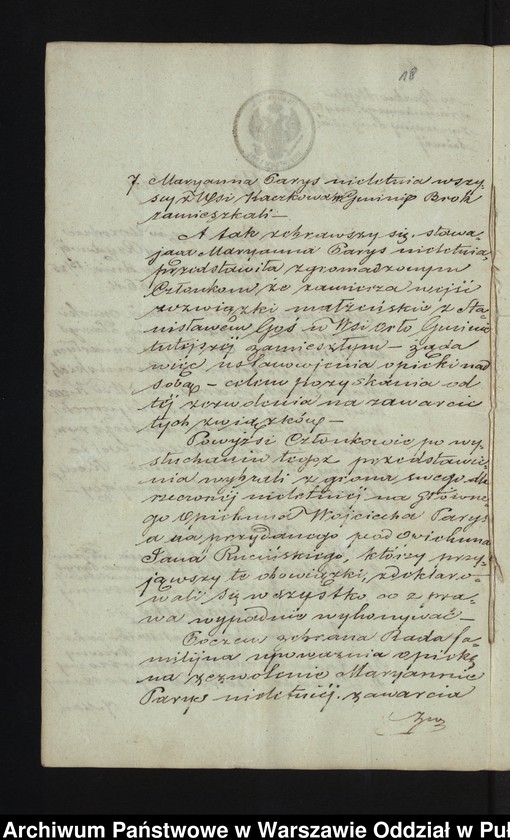 18
7. Maryanna Parys nieletnia wszy-
scy z Wsi Kaczkowa Gminie Brok
zamieszkali —
A tak zebrawszy się stawa-
jąca Maryanna Parys nieletnia,
przedstawiła zgromadzonym
Członkom że zamierza wejść
w związki małżeńskie z Sta-
nisławem Goś w Wsi Orło Gminie
tutejszéj zamieszkłym — żąda
więc ustanowienia opieki nad
sobą — celem pozyskania od
téj zezwolenia na zawarcie
tych związków —
Powyżsi Członkowie po wy-
słuchaniu tegoż przedstawie-
nia wybrali z grona swego dla
rzeczonéj nieletniéj na główne-
go Opiekuna Wojciecha Parys
a na przydanego pod Opiekuna
Jana Rucińskiego, którzy przy-
jąwszy te obowiązki, zdeklaro-
wali się wszystko co z pra-
wa wypadnie wykonywać —
Poczem zebrana Rada fa-
milijna upoważnia opiekę
na zezwolenie Maryannie
Parys nieletniéj zawarcia
zw
Archiwum Państwowe w Warszawie Oddział w Puł